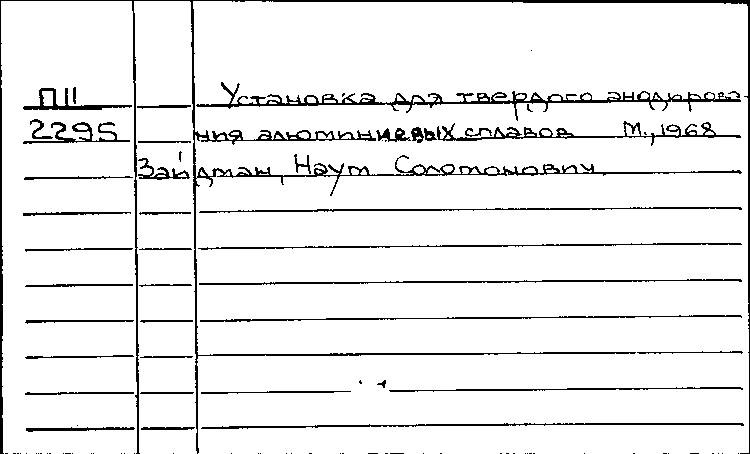 П11 Установка для твердого анодирова-
2295 ния алюминиевых сплавов М., 1968
Зайдман, Наум Соломонович.